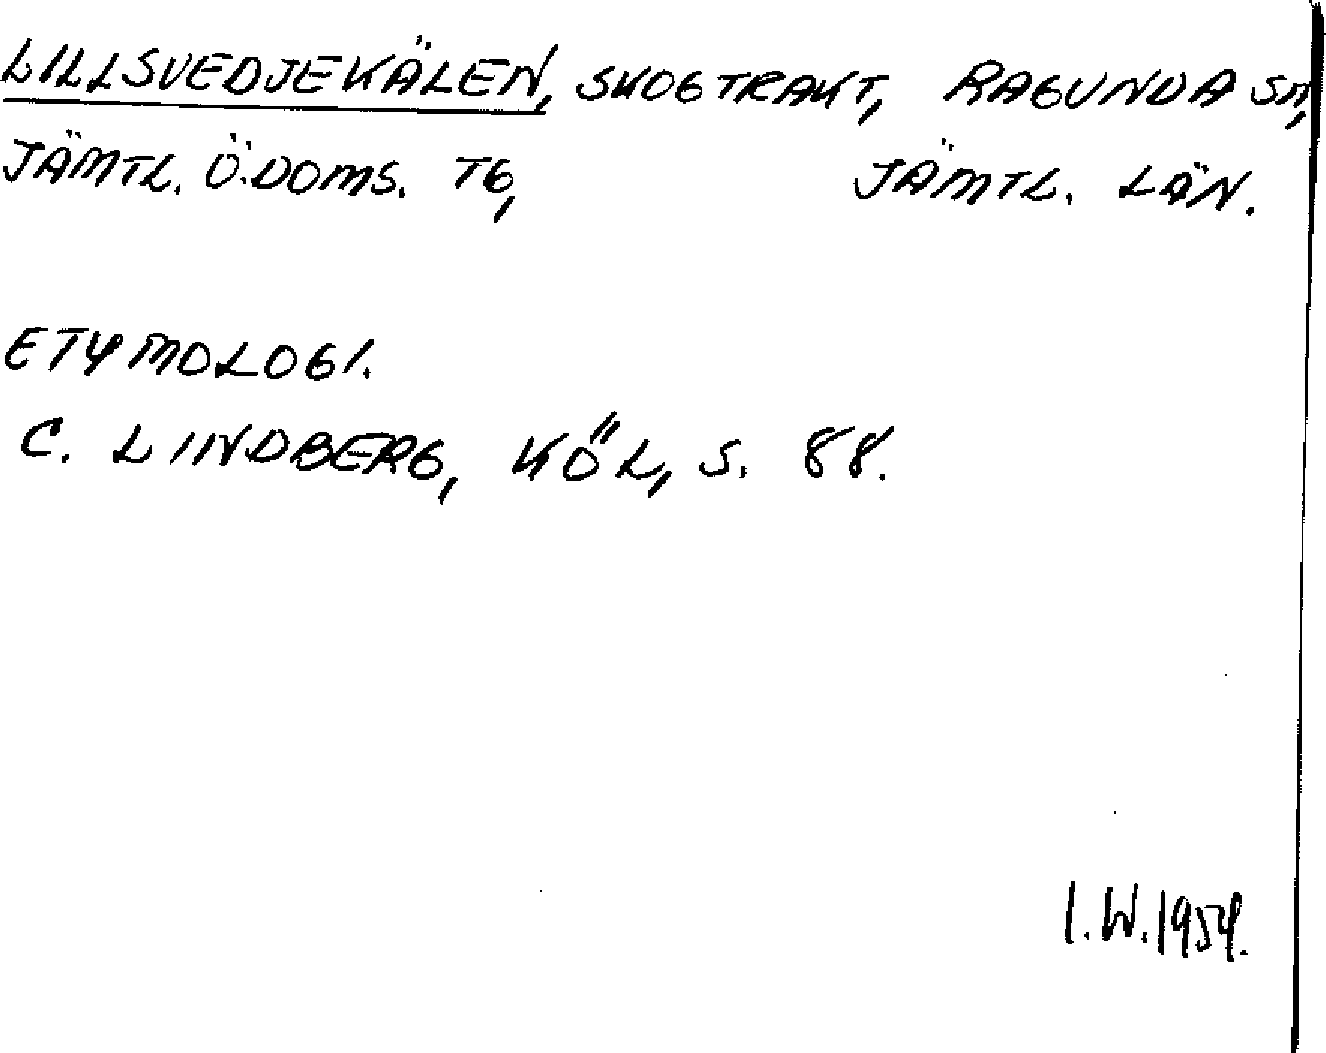 LILLSVEDJEKÄLEN, SKOGTRAKT, RAGUNDA SN,
JÄMTL. Ö. DOMS. TG, JÄMTL. LÄN.
ETYMOLOGI.
C. LINDBERG, KÖL, S. 88.
I.W. 1954.